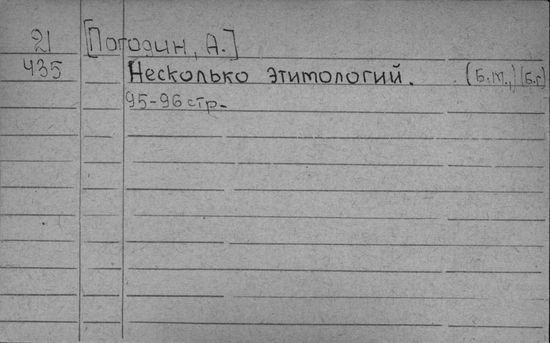 21 [Погодин, А.]
435 Несколько этимологий. (Б.м.,) (Б.г)
95-96 стр.